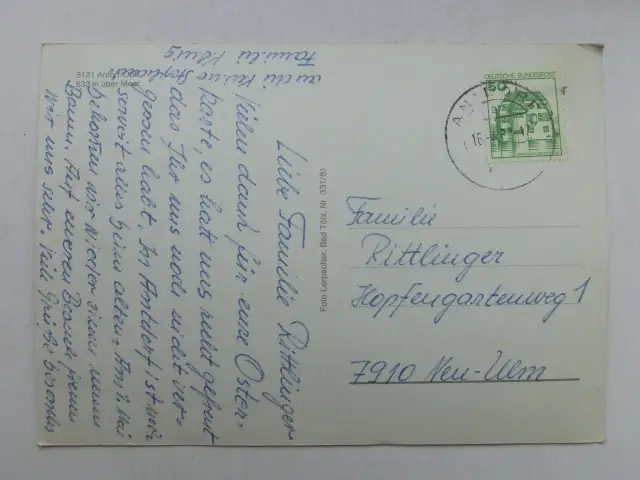 8121 Antdorf/Obb.
633 m über Meer
Liebe Familie Rittlinger
Vielen dank für eure Oster-
karte es hat uns recht gefreut
das Ihr uns noch nicht ver-
gessen habt. In Antdorf ist noch
soweit alles beim alten. Am 7. Mai
bekommen wir wieder einen neuen
Baum. Auf eueren Besuch freuen
wir uns sehr. Viele Grüße besonders
an die kleine
Familie König
Foto Lierpacher, Bad Tölz, Nr. 331/81
DEUTSCHE BUNDESPOST
50
Familie
Rittlinger
Hopfengartenweg 1
7910 Neu-Ulm